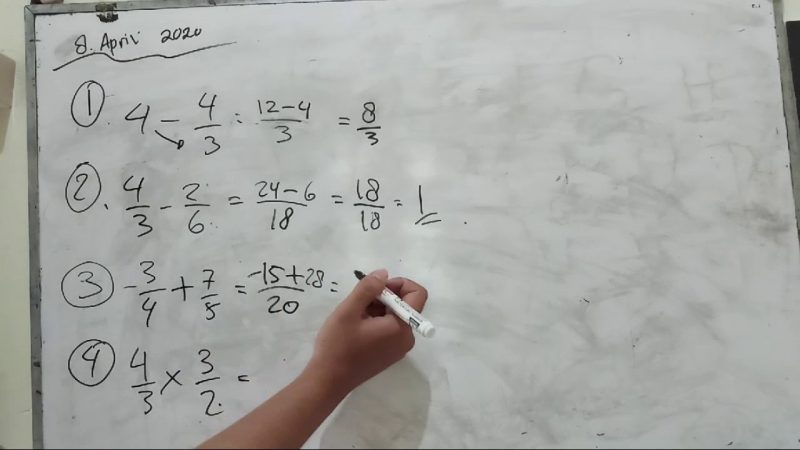 8. April 2020
① 4 - 4/3 = 12-4/3 = 8/3
②. 4/3 - 2/6 = 24-6/18 = 18/18 = 1
③ -3/4 + 7/5 = -15+28/20 =
④ 4/3 × 3/2 =